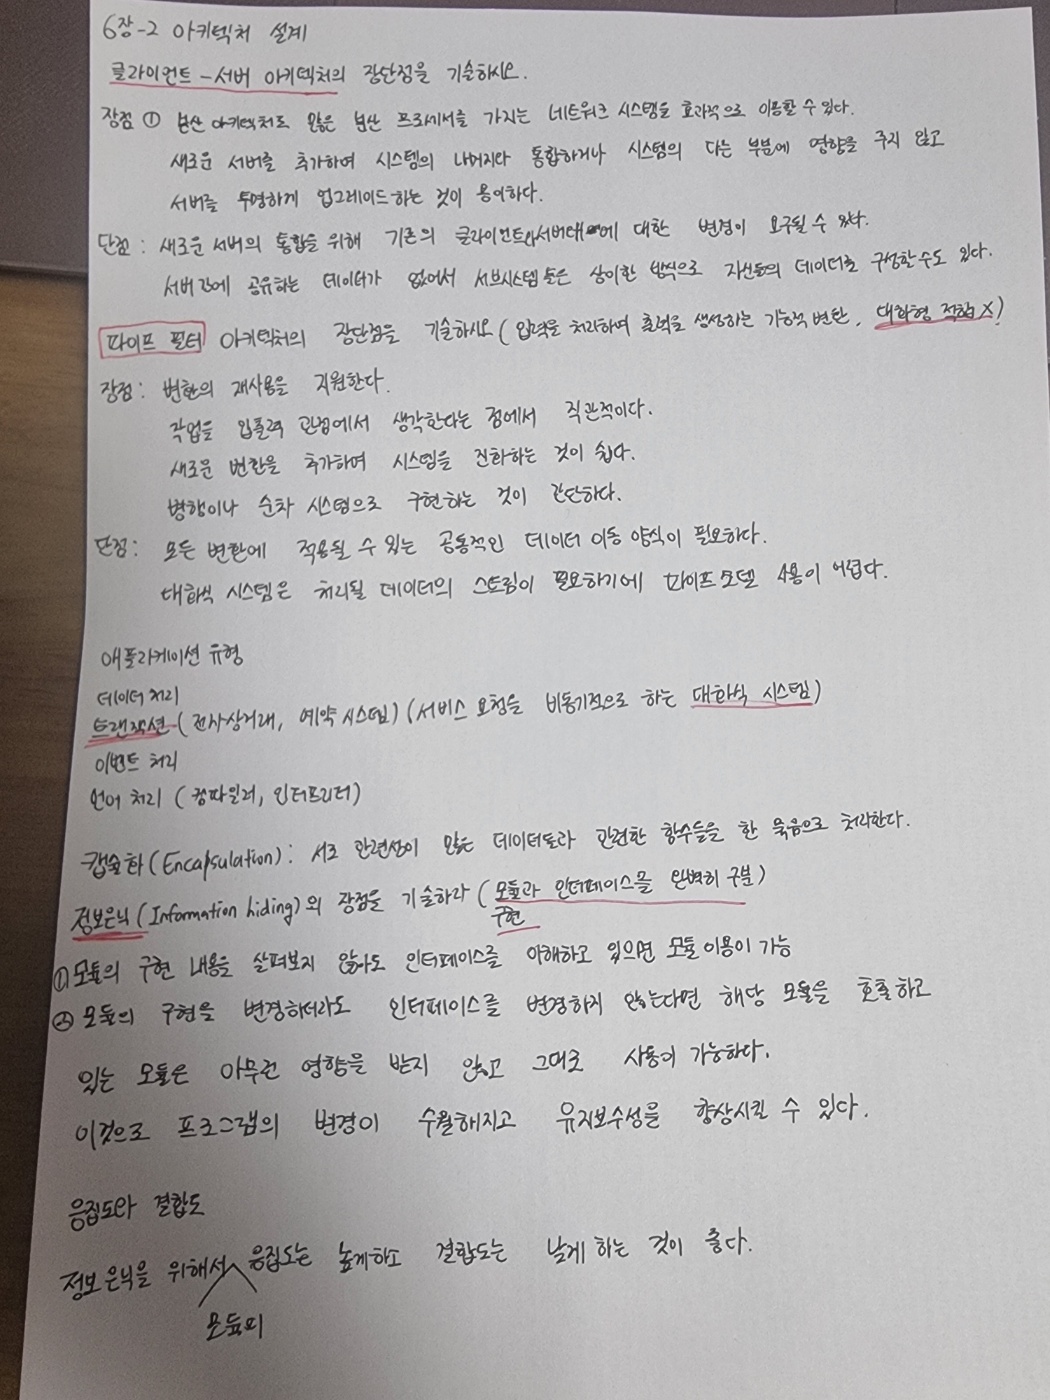 6장-2 아키텍처 설계
클라이언트-서버 아키텍처의 장단점을 기술하시오.
장점 ① 분산 아키텍처로 많은 분산 프로세서를 가지는 네트워크 시스템을 효과적으로 이용할 수 있다.
새로운 서버를 추가하여 시스템의 나머지와 통합하거나 시스템의 다른 부분에 영향을 주지 않고
서버를 투명하게 업그레이드하는 것이 용이하다.
단점: 새로운 서버의 통합을 위해 기존의 클라이언트와서버에 대한 변경이 요구될 수 있다.
서버간에 공유하는 데이터가 없어서 서브시스템들은 상이한 방식으로 자신들의 데이터를 구성할수도 있다.
파이프 필터 아키텍처의 장단점을 기술하시오 (입력을 처리하여 출력을 생성하는 기능적 변환, 대화형 적합X)
장점: 변환의 재사용을 지원한다.
작업을 입출력 관점에서 생각한다는 점에서 직관적이다.
새로운 변환을 추가하여 시스템을 진화하는 것이 쉽다.
병행이나 순차 시스템으로 구현하는 것이 간단하다.
단점: 모든 변환에 적용될 수 있는 공통적인 데이터 이동 양식이 필요하다.
대화식 시스템은 처리될 데이터의 스트림이 필요하기에 파이프모델 사용이 어렵다.
애플리케이션 유형
데이터 처리
트랜잭션-(전자상거래, 예약 시스템) (서비스 요청을 비동기적으로 하는 대화식 시스템)
이벤트 처리
언어 처리 (컴파일러, 인터프리터)
캡슐화(Encapsulation): 서로 관련성이 많은 데이터들과 관련한 함수들을 한 묶음으로 처리한다.
정보은닉(Information hiding)의 장점을 기술하라 (모듈과 인터페이스를 완벽히 구분)
구현
① 모듈의 구현 내용을 살펴보지 않아도 인터페이스를 이해하고 있으면 모듈이용이 가능
② 모듈의 구현을 변경하더라도 인터페이스를 변경하지 않는다면 해당 모듈을 호출하고
있는 모듈은 아무런 영향을 받지 않고 그대로 사용이 가능하다.
이것으로 프로그램의 변경이 수월해지고 유지보수성을 향상시킬 수 있다.
응집도와 결합도
정보은닉을 위해서 응집도는 높게하고 결합도는 낮게 하는 것이 좋다.
모듈의